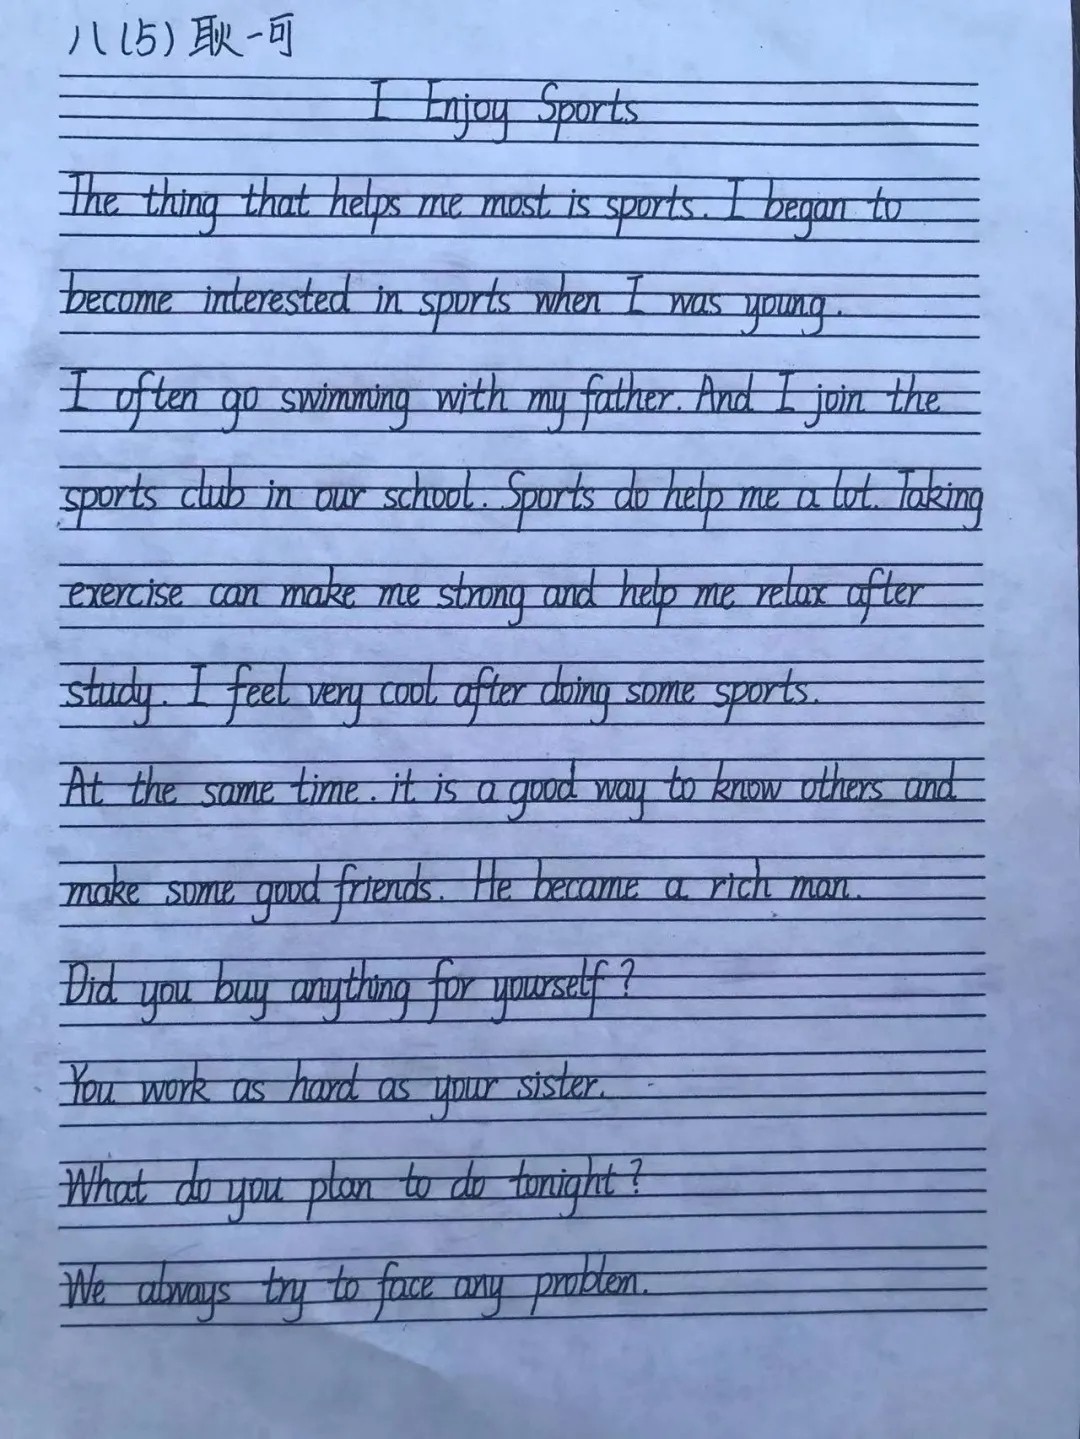 八(5)耿一可
I Enjoy Sports
The thing that helps me most is sports. I began to
become interested in sports when I was young.
I often go swimming with my father. And I join the
sports club in our school. Sports do help me a lot. Taking
exercise can make me strong and help me relax after
study. I feel very cool after doing some sports.
At the same time. it is a good way to know others and
make some good friends. He became a rich man.
Did you buy anything for yourself?
You work as hard as your sister.
What do you plan to do tonight?
We always try to face any problem.